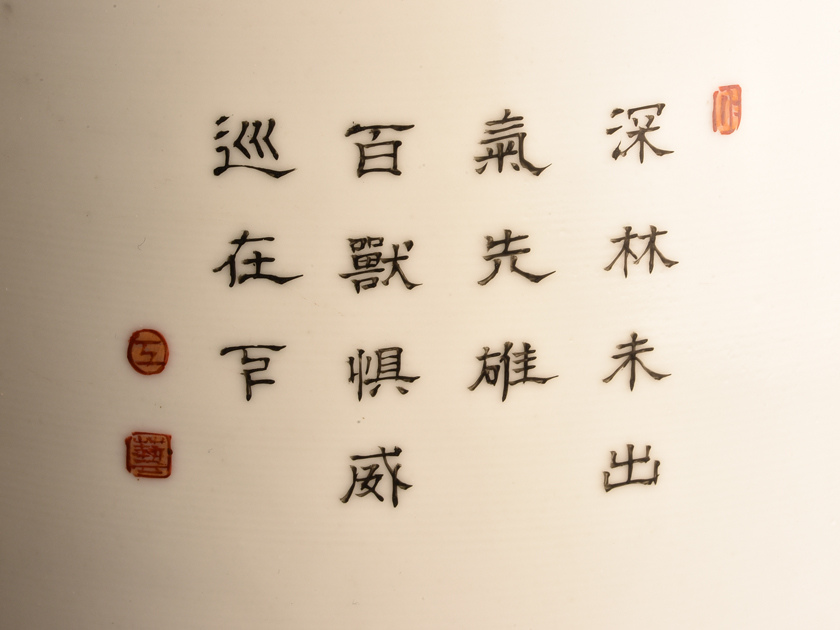 深林未出
氣先雄
百獸惧威
巡在
工
藝